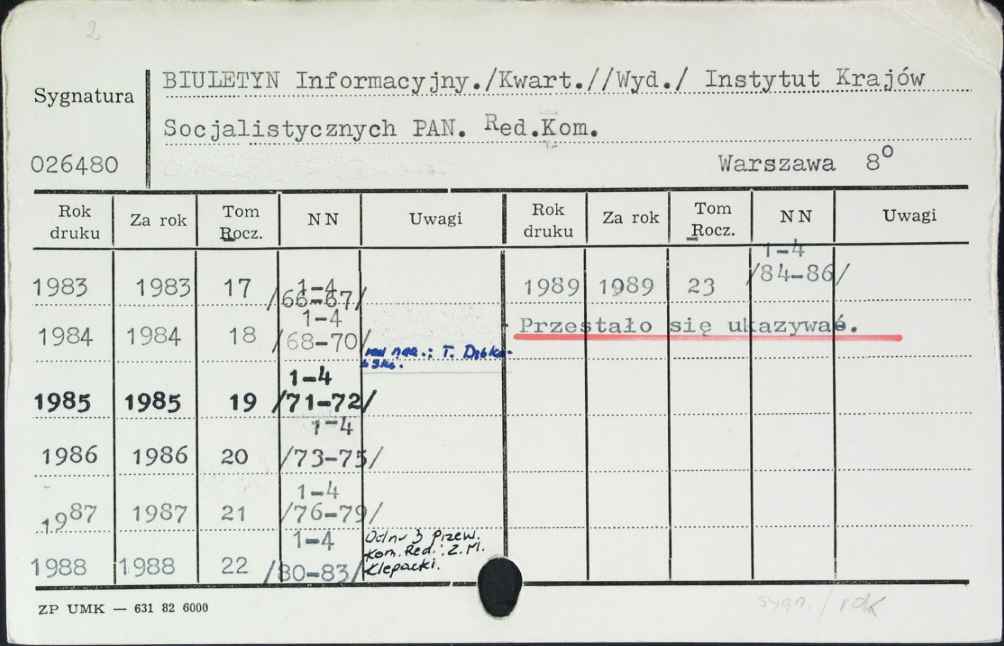 2
Sygnatura
026480
BIULETYN Informacyjny./Kwart.//Wyd./ Instytut Krajów
Socjalistycznych PAN. Red.Kom.
Warszawa 8°
Rok druku Za rok Tom Rocz. NN Uwagi Rok druku Za rok Tom Rocz. NN Uwagi
1983 1983 17 1-4 /66-67/ 1989 1989 23 1-4 /84-86/
1984 1984 18 1-4 /68-70/ red nacz.: T. Przestało się ukazywać.
1985 1985 19 1-4 /71-72/
1986 1986 20 1-4 /73-75/
1987 1987 21 1-4 /76-79/
1988 1988 22 1-4 /80-83/ Od nr 3 przew. Kom. Red.: Z.M. Klepacki.
ZP UMK — 631 82 6000
sygn. / rok